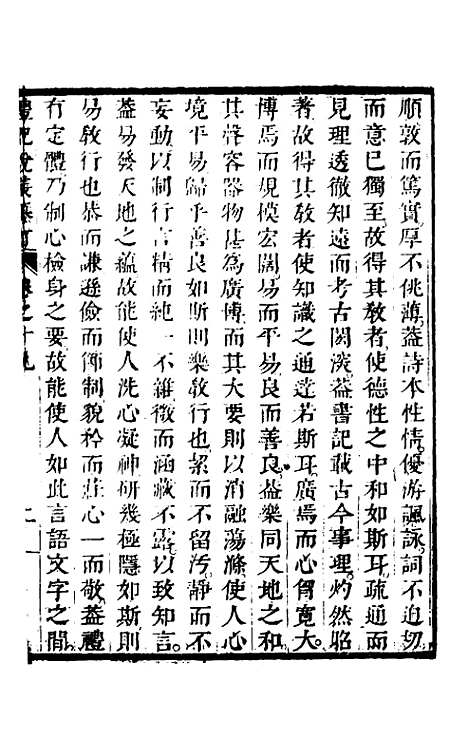 順敦而篤實厚不佻薄葢詩本性情優游諷詠詞不迫切
而意已獨至故得其敎者使德性之中和如斯耳疏通而
見理透徹知遠而考古閎深葢書記載古今事理灼然昭
著故得其敎者使知識之通達若斯耳廣焉而心胷寛大
博焉而規模宏闊易而平易良而善良葢樂同天地之和
其聲容器物甚爲廣博而其大要則以消融蕩滌使人心
境平易歸乎善良如斯則樂敎行也絜而不留汚靜而不
妄動以制行言精而純一不雜微而涵藏不露以致知言
葢易發天地之蘊故能使人洗心凝神硏幾極隱如斯則
易敎行也恭而謙遜儉而節制貌枠而莊心一而敬葢禮
有定體乃制心檢身之要故能使人如此言語文字之間
卷之十九
二